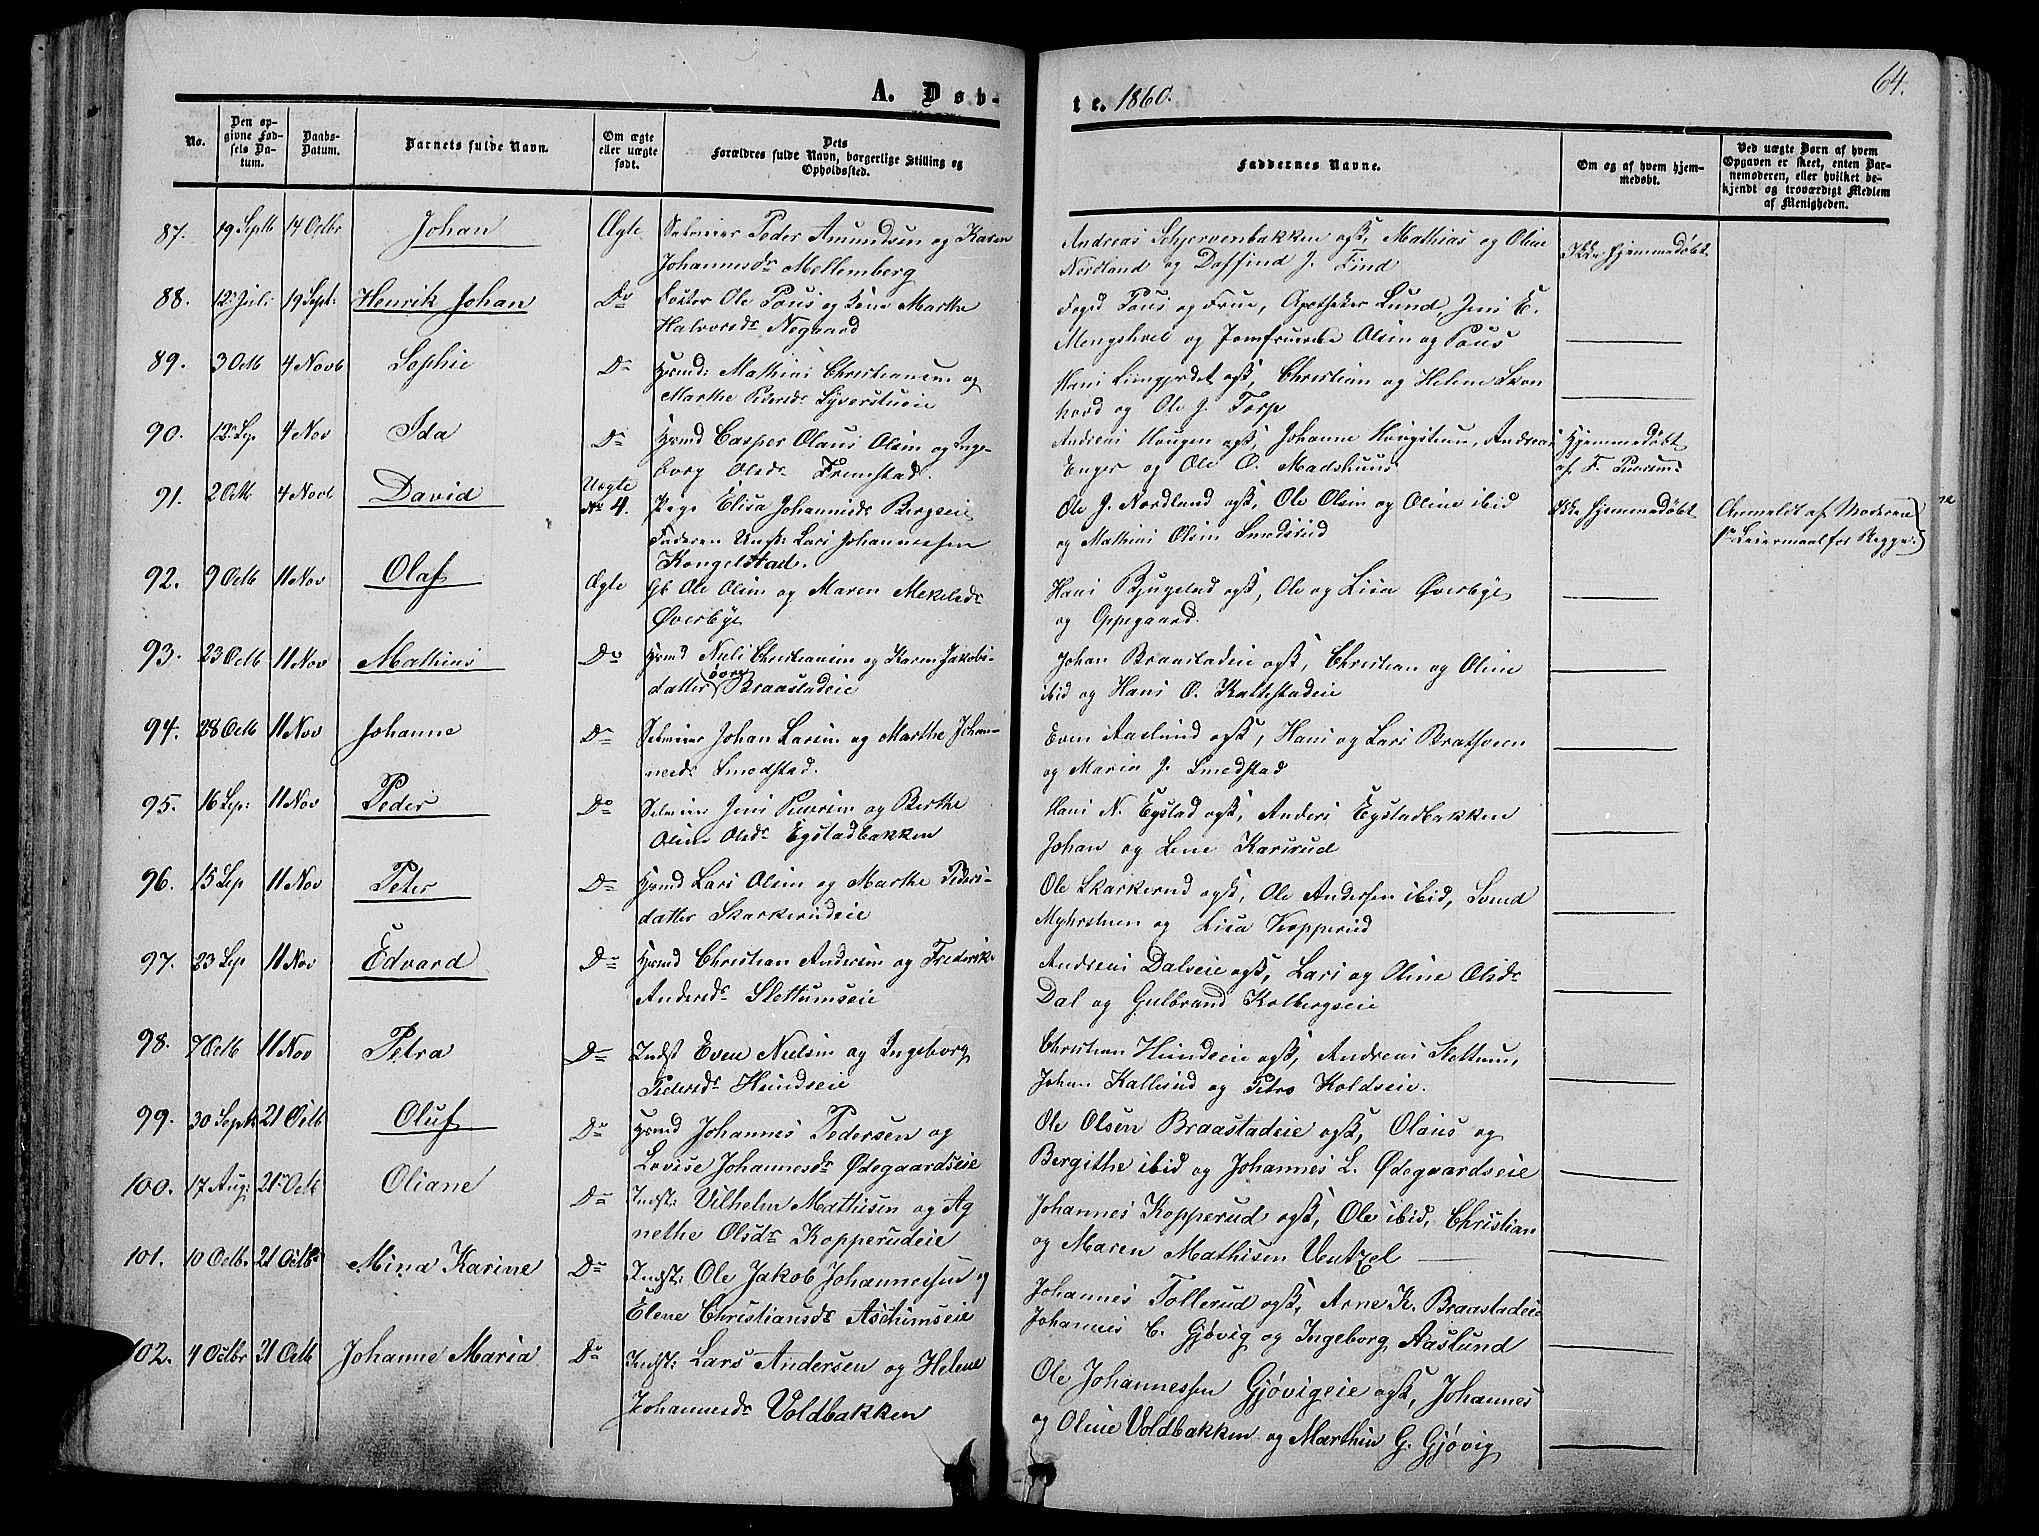 64.
A. Døb-
te. 1860.
No.
Den op-
givne Fød-
sels Da-
tum.
Daabs-
Datum.
Barnets fulde Navn.
Om ægte
eller uægte
født.
Dets
Forældres fulde Navn, borgerlige Stilling og
Opholdssted.
Faddernes Navne.
Om og af hvem hjem-
medøbt.
Ved uægte Børn af hvem
Opgaven er skeet, enten Bar-
nemoderen, eller hvilket be-
kjendt og troværdigt Medlem
af Menigheden.
87. 19 Septb 14 Octbr Johan Ægte Selveier Peder Amundsen og Karen
Johannesdr Mellemberg
Andreas Schjervenbakken ogsk, Mathias og Oline
Nordland og Daffind J. Find
Ikke hjemmedøbt
88. 12 Juli 19 Sept: Henrik Johan Do Ole Pous og Marthe
Halvorsdr Nøgaard
Foged Pous og Frue, Apotheker Lund, Jens E.
Mengshoel og Jomfruerne Olsen og Pous
89. 3 Octb 4 Novb Sophie Do Hsmd: Mathias Christiansen og
Marthe Pedersdr Syverstueie
Hans Limgjerdet ogsk, Christian og Helene Skon
hovd og Ole J. Torp
90. 12 Sep 4 Nov Ida Do Hsmd Casper Olaus Olsen og Inge-
borg Olsdr Fremstad.
Andreas Haugen ogsk, Johanne Haugstuen, Andreas
Enger og Ole O. Madshuus
Hjemmedøbt
af F. Petersen
91. 2 Octb 4 Novb David Uægte
No 4. Pige Elisa Johannesdr Bergseie
Faderen Ungk: Lars Johannessen
Kongelstad.
Ole J. Nordland ogsk, Ole Olsen og Oline ibid
og Mathias Olsen Smedsrud
Ikke hjemmedøbt
Anmeldt af Moderen
1ste Leiermaal for Begge
92. 9 Octb 11 Nov Olaf Ægte Gb Ole Olsen og Maren Mekelsdr
Øverbye
Hans Bjugstad ogsk, Ole og Lisa Øverbye
og Oppegaard.
93. 23 Octb 11 Nov Mathias Do Hsmd Niels Christiansen og Karen Jakobs-
datter Braastadeie
Johan Braastadeie ogsk, Christian og Oline
ibid og Hans O. Kaltestadeie
94. 28 Octb 11 Nov Johanne Do Selveier Johan Larsen og Marthe Johan-
nesdr Smedstad.
Even Aaslund ogsk, Hans og Lars Bratsveen
og Maria J. Smedstad
95. 16 Sep: 11 Nov Peder Do Selveier Jens Pedersen og Berthe
Oline Olsdr Egstadbakken
Hans N. Egstad ogsk, Anders Egstadbakken
Johan og Lene Karsrud
96. 15 Sep 11 Nov Peter Do Hsmd Lars Olsen og Marthe Peders-
datter Skarkerudeie
Ole Skarkerud ogsk, Ole Andersen ibid, Svend
Myhrstuen og Lisa Kopperud
97. 23 Sep 11 Nov Edvard Do Hsmd Christian Andersen og Frederikke
Andersdr Slettumseie
Andreas Dalseie ogsk, Lars og Oline Olsdr
Dal og Gulbrand Kolbergseie
98. 7 Octb 11 Nov Petra Do Indst Even Nielsen og Ingeborg
Pedersdr Hundseie
Christian Hundseie ogsk, Andreas Slettum,
Johan Kallerud og Petro Koldseie.
99. 30 Septb 21 Octb Oluf Do Hsmd Johannes Pedersen og
Lovise Johannesdr Ødegaardseie
Ole Olsen Braastadeie ogsk, Olaus og
Bergithe ibid og Johannes L. Ødegaardseie
100. 17 Aug: 21 Octb Oliane Do Indst: Vilhelm Mathisen og Ag
nethe Olsdr Kopperudeie
Johannes Kopperud ogsk, Ole ibid, Christian
og Maren Mathisen Ventzel
101. 10 Octb. 21 Octb Mina Karine Do Indst: Ole Jakob Johannessen og
Elene Christiansdr Aschimseie
Johannes Tollerud ogsk, Arne K. Braastadeie
Johannes C. Gjøvig og Ingeborg Aaslund
102. 4 Octbr 21 Octb Johanne Maria Do Indst: Lars Andersen og Helene
Johannesdr Voldbakken
Ole Johannessen Gjøvigeie ogsk, Johannes
og Oline Voldbakken og Marthin G. Gjøvig